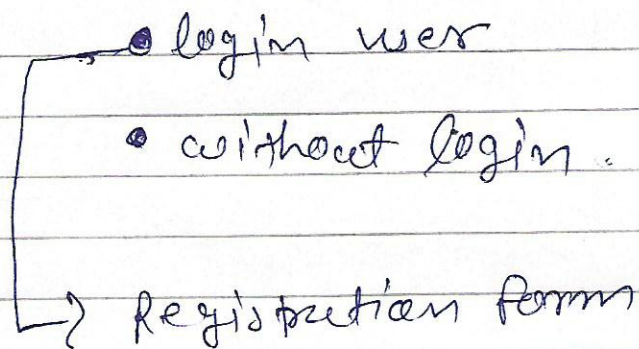 • login user
• without login.
→ Registration form